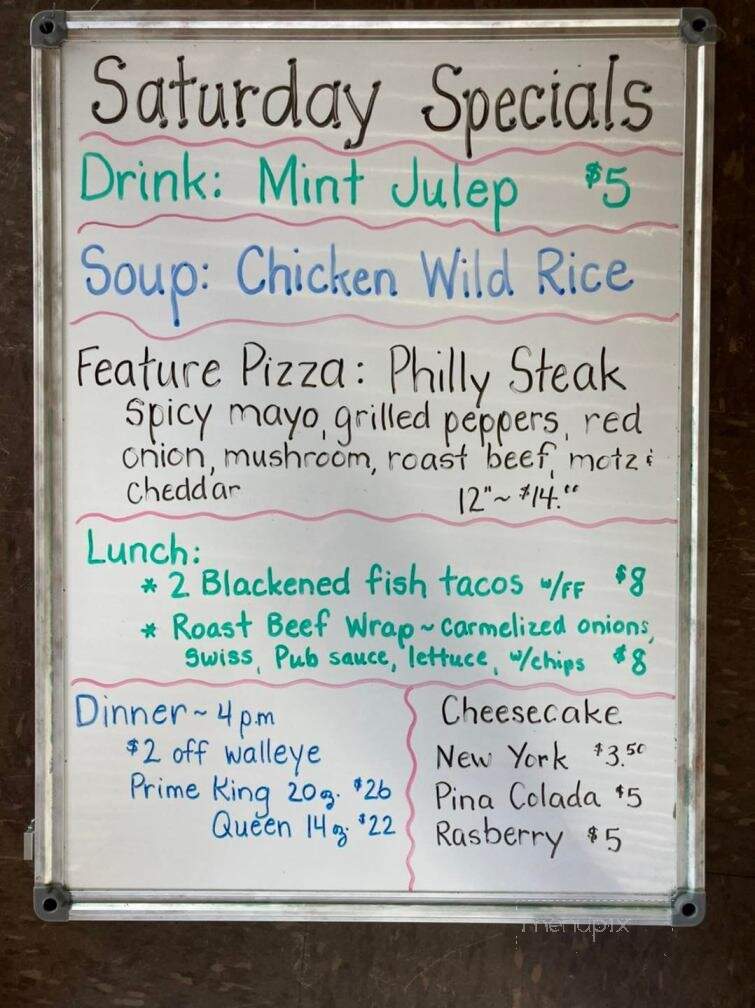 Saturday Specials
Drink: Mint Julep $5
Soup: Chicken Wild Rice
Feature Pizza: Philly Steak
Spicy mayo, grilled peppers, red
onion, mushroom, roast beef, motz &
cheddar 12"~ $14.00
Lunch:
* 2 Blackened fish tacos w/FF $8
* Roast Beef Wrap ~ carmelized onions,
swiss, Pub sauce, lettuce, w/chips $8
Dinner ~ 4 pm
$2 off walleye
Prime King 20 oz. $26
Queen 14 oz. $22
Cheesecake
New York $3.50
Pina Colada $5
Rasberry $5
menupix